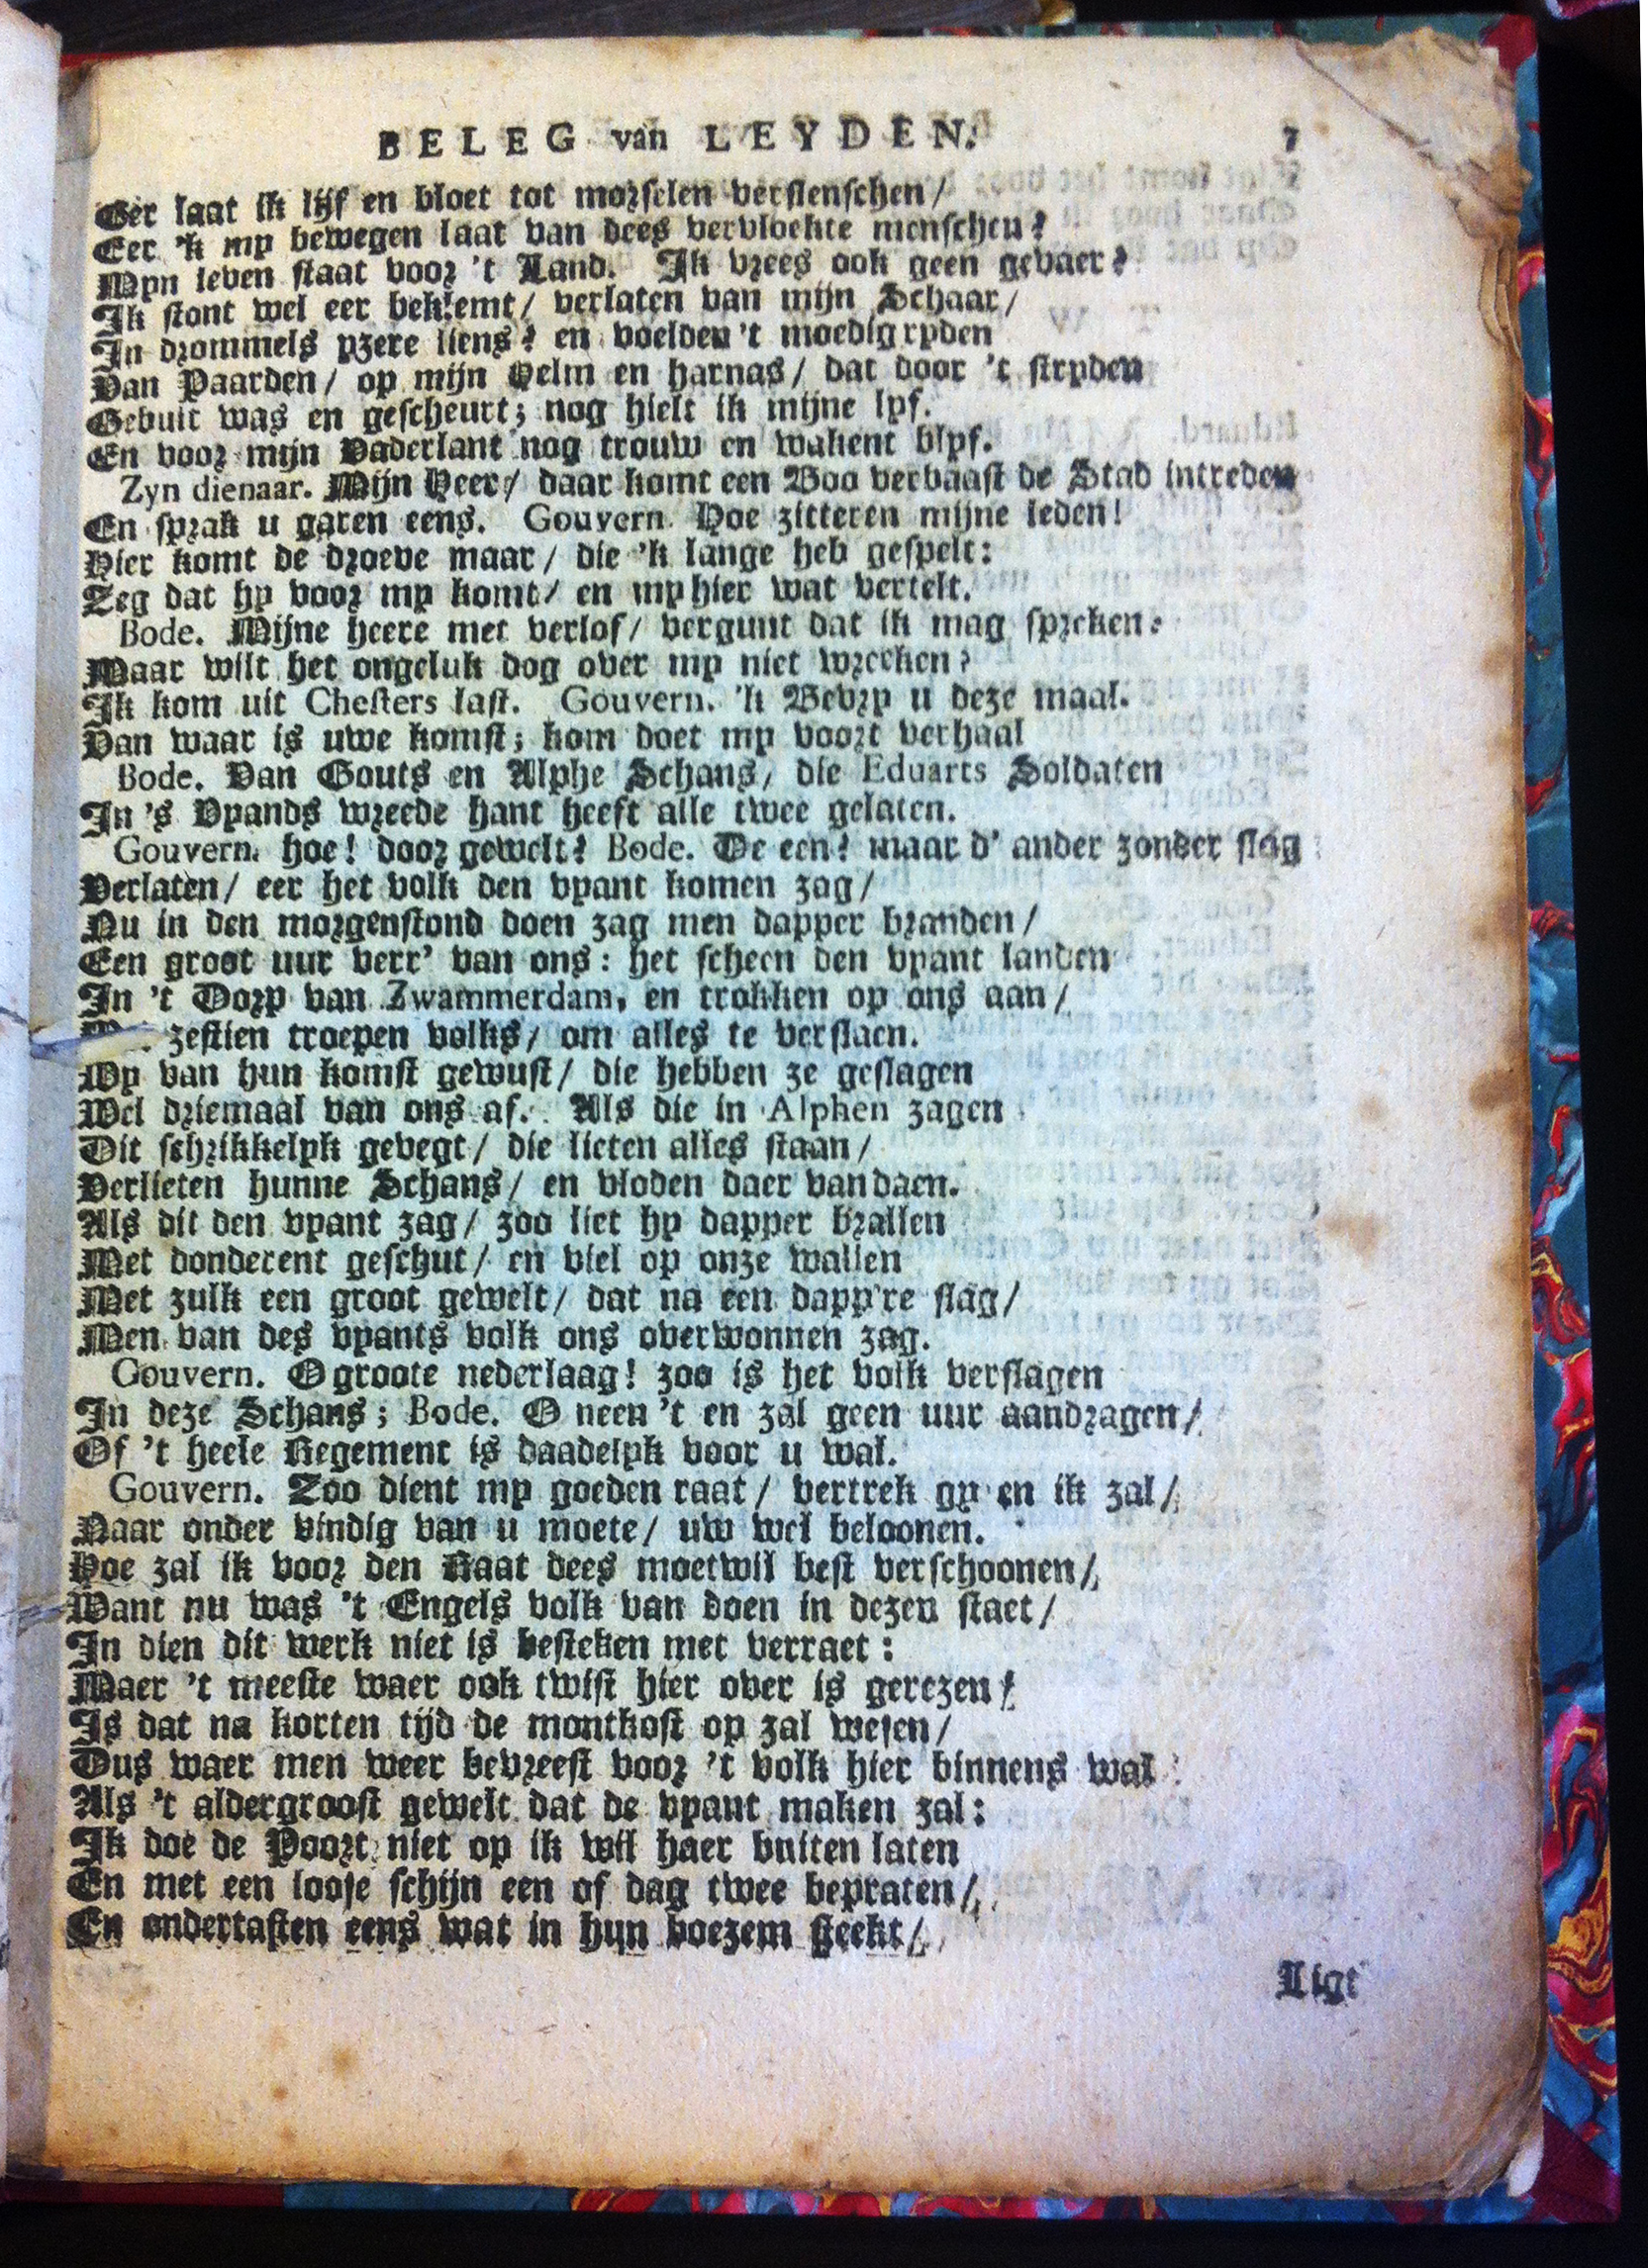 BELEG van LEYDEN. 7
Eer laat ik lijf en bloet tot morselen verslenschen/
Eer 'k my bewegen laat van dees vervloekte menschen?
Myn leven staat voor 't Land. Ik vrees ook geen gevaer?
Ik stont wel eer beklemt/ verlaten van mijn Schaar/
In drommels yzere liens? en voelden 't moedig ryden
Van Paarden/ op mijn Helm en harnas/ dat door 't stryden
Gebuit was en gescheurt; nog hielt ik mijne lyf.
En voor mijn Vaderlant nog trouw en wakent blyf.
Zyn dienaar. Mijn Heer/ daar komt een Boo verbaast de Stad intreden
En sprak u garen eens. Gouvern. Hoe zitteren mijne leden!
Hier komt de droeve maar/ die 'k lange heb gespelt:
Zeg dat hy voor my komt/ en my hier wat vertelt.
Bode. Mijne heere met verlof/ vergunt dat ik mag spreken.
Maar wilt het ongeluk dog over my niet wreeken?
Ik kom uit Chesters last. Gouvern. 'k Bevry u deze maal.
Van waar is uwe komst; kom doet my voort verhaal
Bode. Van Gouts en Alphe Schans/ die Eduarts Soldaten
In 's Vyands wreede hant heeft alle twee gelaten.
Gouvern. hoe! door gewelt? Bode. De een? maar d' ander zonder slag
Verlaten/ eer het volk den vyant komen zag/
Nu in den morgenstond doen zag men dapper branden/
Een groot uur verr' van ons: het scheen den vyant landen
In 't Dorp van Zwammerdam, en trokken op ons aan/
zestien troepen volks/ om alles te verslaen.
Wy van hun komst gewust/ die hebben ze geslagen
Wel driemaal van ons af. Als die in Alphen zagen
Dit schrikkelyk gevegt/ die lieten alles staan/
Verlieten hunne Schans/ en vloden daer van daen.
Als dit den vyant zag/ zoo liet hy dapper brallen
Met donderent geschut/ en viel op onze wallen
Met zulk een groot gewelt/ dat na een dapp're slag/
Men van des vyants volk ons overwonnen zag.
Gouvern. O groote nederlaag! zoo is het volk verslagen
In deze Schans; Bode. O neen 't en zal geen uur aandragen/
Of 't heele Regement is daadelyk voor u wal.
Gouvern. Zoo dient my goeden raat/ vertrek gy en ik zal/
Naar onder vindig van u moete/ uw wel beloonen.
Hoe zal ik voor den Raat dees moetwil best verschoonen/
Want nu was 't Engels volk van doen in dezen staet/
In dien dit werk niet is besteken met verraet:
Maer 't meeste waer ook twist hier over is gerezen/
Is dat na korten tijd de montkost op zal wesen/
Dus waer men weer bevreest voor 't volk hier binnens wal
Als 't aldergroost gewelt dat de vyant maken zal:
Ik doe de Poort niet op ik wil haer buiten laten
En met een loose schijn een of dag twee bepraten/
En ondertasten eens wat in hun boezem steekt/
Ligt